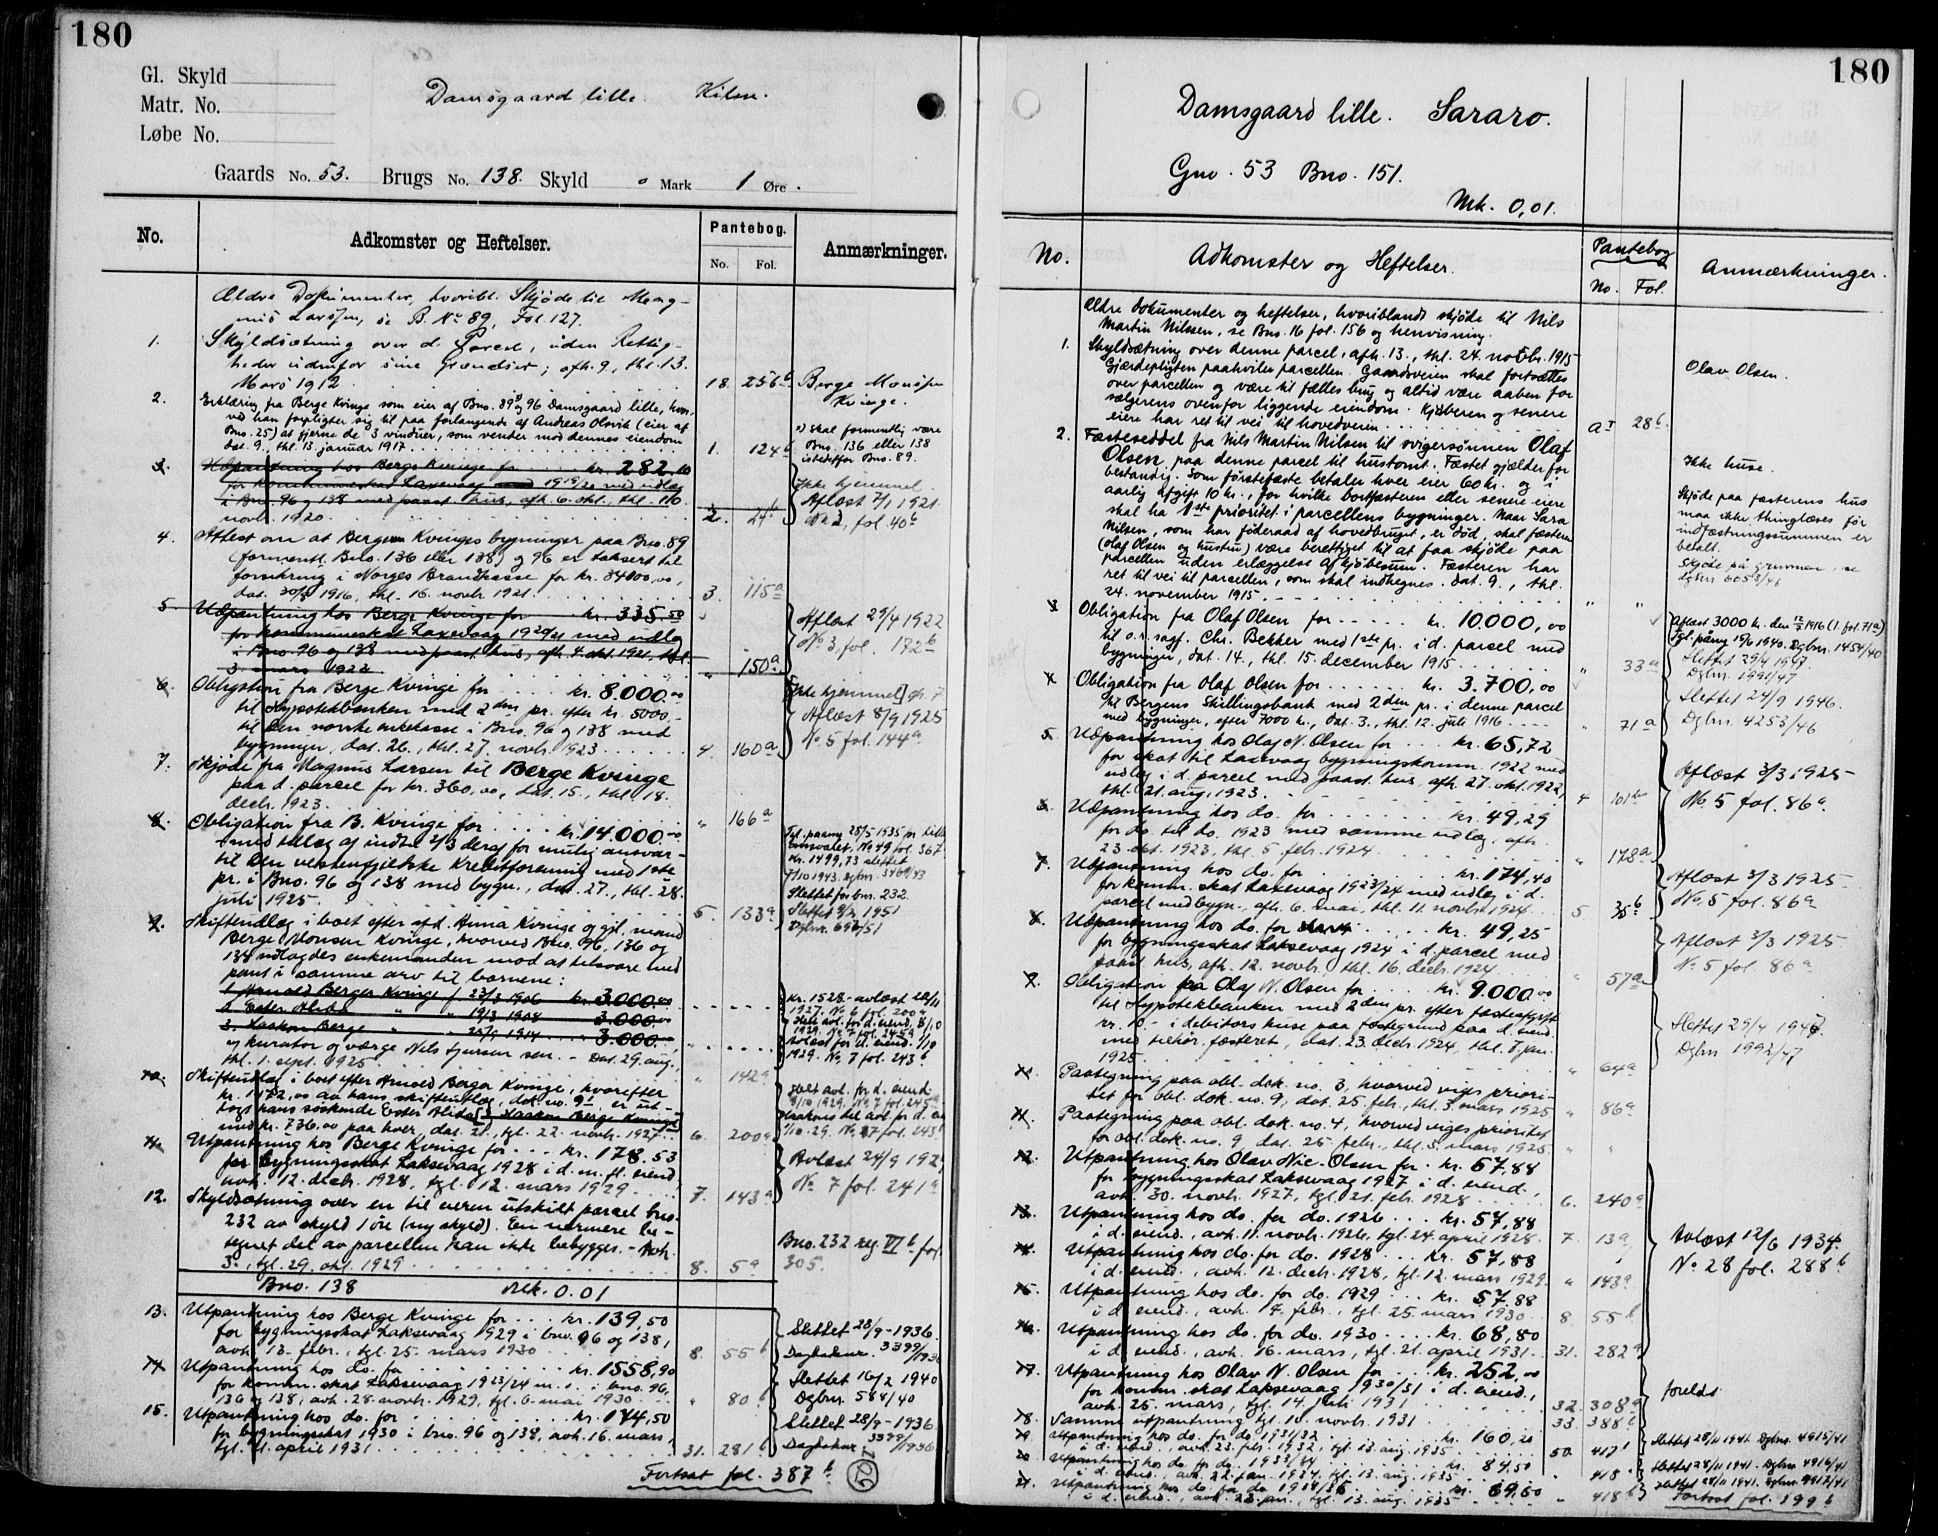 180
Gl. Skyld
Matr. No.
Løbe No.
Damsgaard lille. Hilsen.
Gaards No. 53. Brugs No. 138. Skyld 0 Mark 1 Øre.
No. Adkomster og Heftelser. Pantebog. No. Fol. Anmærkninger.
Ældre Dokumenter, hvoribl. Skjøde til Mag-
nus Larssen, se B. No 89, Fol. 127.
1. Skyldsætning over d. Parcel, uden Rettig-
heder udenfor sine Grændser; afh. 9., thl. 13.
Mars 1912 18. 256b Berge Monsen Kvinge.
2. Erklæring fra Berge Kvinge som eier af Bno. 89 og 96 Damsgaard lille, hvor-
ved han forpligter sig til paa forlangende af Andreas Olsvik (eier af
Bno. 25) at fjerne de 3 vinduer, som vender mod dennes eiendom
dat. 9., thl. 13. januar 1917 1. 124b
skal formentlig være
Bno. 136 eller 138
istedetfor Bno. 89.
3. Udpantning hos Berge Kvinge for kr. 282,10
for kommuneskat Laxevaag 1919/20 med udlæg
i Bno. 96 og 138 med paast. hus, afh. 6. okt., thl. 16.
novb. 1920 2. 24b
Ikke hjemmel.
Aflæst 7/1 1921.
No 2, fol. 40b
4. Attest om at Berge Kvinges bygninger paa Bno. 89
(formentl. Bno. 136 eller 138) og 96 er taksert til
forsikring i Norges Brandkasse for kr. 34000,00,
dat. 30/8 1916, thl. 16. novb. 1921 3. 115a
5. Udpantning hos Berge Kvinge for kr. 335,50
for kommuneskat Laxevaag 1920/21 med udlæg
i Bno. 96 og 138 med paast. hus, afh. 4. okt. 1921, thl.
3. mars 1922 " 150a
Aflæst 29/4 1922
No 3, fol. 172b
6. Obligation fra Berge Kvinge for kr. 8.000,00
til Hypotekbanken med 2den pr. efter kr. 5000,-
til Den norske enkekasse i Bno. 96 og 138 med
bygninger, dat. 26., thl. 27. novb. 1923 4. 160a
Ikke hjemmel] cfr. 7
Aflæst 8/9 1925
No 5 fol. 144a
7. Skjøde fra Magnus Larsen til Berge Kvinge
paa d. parcel for kr. 360,00, dat. 15., thl. 18.
decb. 1923 " 166a
8. Obligation fra B. Kvinge for kr. 14.000,00
med tillæg af indtil 2/3 deraf for mulig ansvar
til Den vestenfjeldske Kreditforening med 1ste
pr. i Bno. 96 og 138 med bygn., dat. 27., thl. 28.
juli 1925 5. 133a
Kr. 1499,73 slettet
7/10 1943. Dgbnr. 3469/43
Slettet for bnr. 232.
Dgbnr. 692/51
9. Skifteudlæg i boet efter afd. Anna Kvinge og gjl. mand
Berge Monsen Kvinge, hvorved Bno. 96, 136 og
138 udlagdes enkemanden mod at tilsvare med
pant i samme arv til barnene:
1. Arnold Berger Kvinge f. 23/3 1906 kr. 3.000,00
2. Ester Alida " " 19/3 1908 3.000,00
3. Haakon Berge " " 1914 3.000,00
og kurator og værge Nils - Dat. 29. aug.,
thl. 1. sept. 1925 " 142a
kr. 1528,- avlæst
1927. No 6 fol. 200a
1929. No 7 fol. 245a
Avlæst for d. eiend. 1/10
1929. No 7 fol. 243b
10. Skifteutlæg i boet efter Arnold Berger Kvinge, hvorefter
kr. 1472,00 av hans skifteutlæg, dok. no. 9 1 er ut-
lagt hans søskende Ester Alida og Haakon Berge Kvinge
med kr. 736,00 paa hver, dat. 21., tgl. 22. novb. 1927 6. 200a
11. Utpantning hos Berge Kvinge for kr. 178,53
for bygningsskat Laksevaag 1928 i d. m. fl. eiend.,
avh. 12. decb. 1928, tgl. 12. mars 1929 7. 143a
Avlæst 24/9 1929
No 7 fol. 241a
12. Skyldsætning over en til veien utskilt parcel bno.
232 av skyld 1 øre (ny skyld). En nærmere be-
tegnet del av parcellen kan ikke bebygges. - Avh.
3., tgl. 29. okt. 1929 8. 5a
Bno. 232 reg. VI b fol.
305.
Bno. 138 Mk. 0.01
13. Utpantning hos Berge Kvinge for kr. 139,50
for bygningsskat Laksevaag 1929 i bno. 96 og 138,
avh. 13. febr., tgl. 25. mars 1930 8. 55b
Slettet 28/9-1936.
Dagboknr. 3399/1936
14. Utpantning hos do. for kr. 1558,90
for komm. skat Laksevaag 1923/24 m. v. i bno. 96,
136 og 138, avh. 28. novb. 1929, tgl. 6. mai 1930 " 80b
Slettet 16/2 1940
Dgbnr. 584/40
15. Utpantning hos do. for kr. 174,50
for bygningsskat 1930 i bno. 96 og 138, avh. 16. mars,
tgl. 21. april 1931 31. 281b
Slettet 28/9-1936
Dagboknr. 3399/1936
Fortsat fol. 387b
180
Damsgaard lille. Sararo.
Gno. 53 Bno. 151.
Mk. 0,01.
No. Adkomster og Heftelser. Pantebog No. Fol. Anmærkninger.
Ældre dokumenter og heftelser, hvoriblandt skjøde til Nils
Martin Nilssen, se Bno. 16 fol. 156 og henvisning.
1. Skyldsætning over denne parcel, afh. 13., thl. 24. novbr. 1915
Gjærdepligten paahviler parcellen. Gaardsveien skal fortsættes
over parcellen og være til fælles brug og altid være aaben for
sælgerens ovenfor liggende eiendom. Kjøberen og senere
eiere har ret til vei til hovedveien a I 28b.
Olav Olsen.
2. Fæsteseddel fra Nils Martin Nilsen til svigersønnen Olaf
Olsen paa denne parcel til hustomt. Fæstet gjælder for
bestandig. Som førstefæste betaler hver eier 60 kr. og i
aarlig afgift 10 kr., for hvilke bortfæsteren eller senere eiere
skal ha 1ste prioritet i parcellens bygninger. Naar Sara
Nilsen, som har føderaad af hovedbruget, er død, skal fæsteren
(Olaf Olsen og hustru) være berettiget til at faa skjøde paa
parcellen uden erlæggelse af kjøbesum. Fæsteren har
ret til vei til parcellen, som skal indhegnes. Dat. 9., thl.
24. november 1915 " "
Ikke huse.
Skjøde paa fæsterens hus
maa ikke thinglæses før
indfæstningssummen er
betalt.
Skjøde på grunnen, se
dgbnr 6053/46
3. Obligation fra Olaf Olsen for kr. 10.000,00
til o.r. sagf. Chr. Bekker med 1ste pr. i d. parcel med
bygninger, dat. 14., thl. 15. december 1915 " 33a
Aflæst 3000 kr. den 12/5 1916 (1. fol. 71a)
Tgl. påny 15/6 1940. Dgbnr. 1454/40
Slettet 29/4 1947.
Dgbnr. 1991/47
4. Obligation fra Olaf Olsen for kr. 3.700,00
til Bergens Skillingsbank med 2den pr. i denne parcel
med bygninger, efter 7000 kr., dat. 3., thl. 12. juli 1916 " 71a
Slettet 24/9 1946.
Dgbnr. 4253/46
5. Udpantning hos Olaf N. Olsen for kr. 65,72
for skat til Laxevaag bygningskomm. 1922 med
udlæg i d. parcel med paast. hus, afh. 27. okt. 1922,
thl. 21. aug. 1923 4 101b
Aflæst 3/3 1925
No. 5 fol. 86a
6. Udpantning hos do. for kr. 49,29
for do. til do. 1923 med samme udlæg, afh.
23. okt. 1923, thl. 5. feb. 1924 " 178a
7. Utpantning hos do. for kr. 174,40
for komm. skat Laxevaag 1923/24 med udlæg i d.
parcel med bygn., afh. 6. mai, thl. 11. novb. 1924 5. 35b
Aflæst 3/3 1925
No. 5 fol. 86a
8. Udpantning hos do. for kr. 49,25
for bygningsskat Laksevaag 1924 i d. parcel med
paast. hus, afh. 12. novb., thl. 16. decb. 1924 " 57a
Aflæst 3/3 1925
No. 5 fol. 86a
9. Obligation fra Olaf N. Olsen for kr. 9.000,00
til Hypotekbanken med 2den pr. efter fæsteafgift
kr. 10.- i debitors huse paa fæstegrund paa d. eiend.
med tilhør. fæsteret, dat. 23. decb. 1924, thl. 7. jan.
1925 " 64a
Slettet 29/4 1947.
Dgbnr 1992/47
10. Paategning paa obl. dok. no. 3, hvorved viges priori-
tet for obl. dok. no. 9, dat. 25. feb., thl. 3. mars 1925 " 86a
11. Paategning paa obl. dok. no. 4, hvorved viges prioritet
for obl. dok. no. 9 dat. 25. febr., thl. 3. mars 1925 " "
12. Utpantning hos Olav Nic. Olsen for kr. 57,88
for bygningsskat Laksevaag 1927 i d. eiend.,
avh. 30. novb. 1927, tgl. 21. feb. 1928 6. 240a
13. Utpantning hos do. for do. 1926 kr. 57,88
i d. eiend., avh. 11. novb. 1926, tgl. 24. april 1928 7. 13a
14. Utpantning hos do. for do. 1928 kr. 57,88
i d. eiend., avh. 12. decb. 1928, tgl. 12. mars 1929 " 143a
15. Utpantning hos do. for do. 1929 kr. 57,88
i d. eiend., avh. 14. febr., tgl. 25. mars 1930 8. 55b
16. Utpantning hos do. for do. 1930 kr. 68,80
i d. eiend., avh. 16. mars, tgl. 21. april 1931 31. 282a
Avlæst 12/6 1934.
No 28 fol. 288b
17. Utpantning hos Olav N. Olsen for kr. 252,00
for komm. skat Laksevaag 1930/31 i d. eiend.,
avh. 25. mars, tgl. 14. juli 1931 32. 308a
foreldt
18. Samme utpantning tgl. 10. novb. 1931 33. 388b
19. Utpantning hos do. for do. 1931/32 kr. 160,20
i d. eiend., avh. 23. feb. 1932, tgl. 13. aug. 1935 50. 417b
Slettet 28/11 1941. Dgbnr. 4915/41
20. Utpantning hos do. for do. 1933/34 kr. 84,50
i d. eiend., avh. 22. jan. 1934, tgl. 13. aug. 1935 " 418a
Slettet 28/11 1941. Dgbnr. 4916/41
21. Utpantning hos do. for do. 1934/35 kr. 69,60
i d. eiend., avh. 23. jan., tgl. 13. aug. 1935 " 418b
Slettet 28/11 1941. Dgbnr. 4912/41
Fortsat fol. 199b